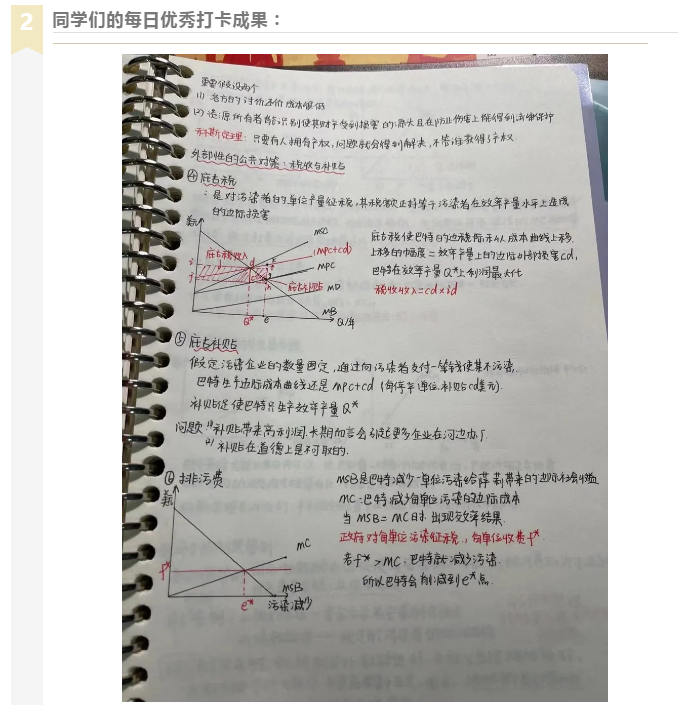 2 同学们的每日优秀打卡成果：
重要假设两个
(1) 各方的讨价还价成本很低
(2) 资源所有者能识别使其财产受到损害的源头且在防止伤害上能得到法律保护
科斯定理：只要有人拥有产权，问题就会得到解决，不管谁获得了产权
外部性的公共对策：税收与补贴
④ 庇古税
：是对污染者的单位产量征税，其税额正好等于污染者在效率产量水平上造成
的边际损害
美元
MSC
(MPC+cd)
MPC
庇古税收入
庇古补贴
MD
MB
i
j
d
c
Q*
e
Q/年
庇古税使巴特的边际私人成本曲线上移
上移的幅度=效率产量上的边际外部损害cd,
巴特在效率产量Q*上利润最大化
税收收入=cd×id
⑤ 庇古补贴
假定污染企业的数量固定，通过向污染者支付一笔钱使其不污染
巴特生产边际成本曲线还是MPC+cd (每停产1单位.补贴cd美元).
补贴促使巴特只生产效率产量Q*
问题 1) 补贴带来高利润.长期而言会引起更多企业在河边办厂
2) 补贴在道德上是不可取的.
⑥ 排污费
美元
MC
f*
MSB
e*
污染减少
MSB是巴特减少一单位污染给莉莎带来的边际社会收益
MC：巴特减少每单位污染的边际成本
当MSB=MC时.出现效率结果.
政府对每单位污染征税，每单位收费f*.
若f*>MC.巴特就减少污染
所以巴特会削减到e*点.